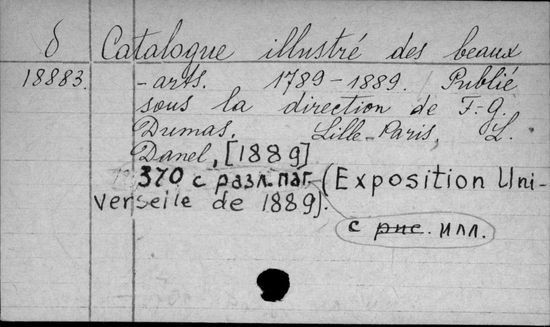 δ Catalogue illustré des beaux
18883. -arts. 1789-1889. Publié
sous la direction de F.-G.
Dumas. Lille-Paris, L.
Danel, [1889]
370 с разл. паг. (Exposition Uni-
verselle de 1889).
с рис. илл.